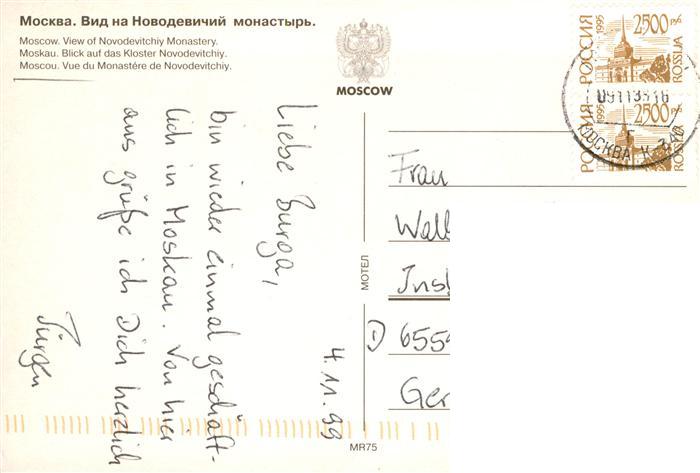 Москва. Вид на Новодевичий монастырь.
Moscow. View of Novodevitchiy Monastery.
Moskau. Blick auf das Kloster Novodevitchiy.
Moscou. Vue du Monastére de Novodevitchiy.
MOSCOW
РОССИЯ 1995
2500 р.
ROSSIJA
РОССИЯ 1995
2500 р.
ROSSIJA
МОСКВА
Liebe Burga,
bin wieder einmal geschäft-
lich in Moskau. Von hier
aus grüße ich Dich herzlich
Jürgen
4.11.99
МОТЕЛ
MR75
Frau
Wall
Inst
D 6559
Ger